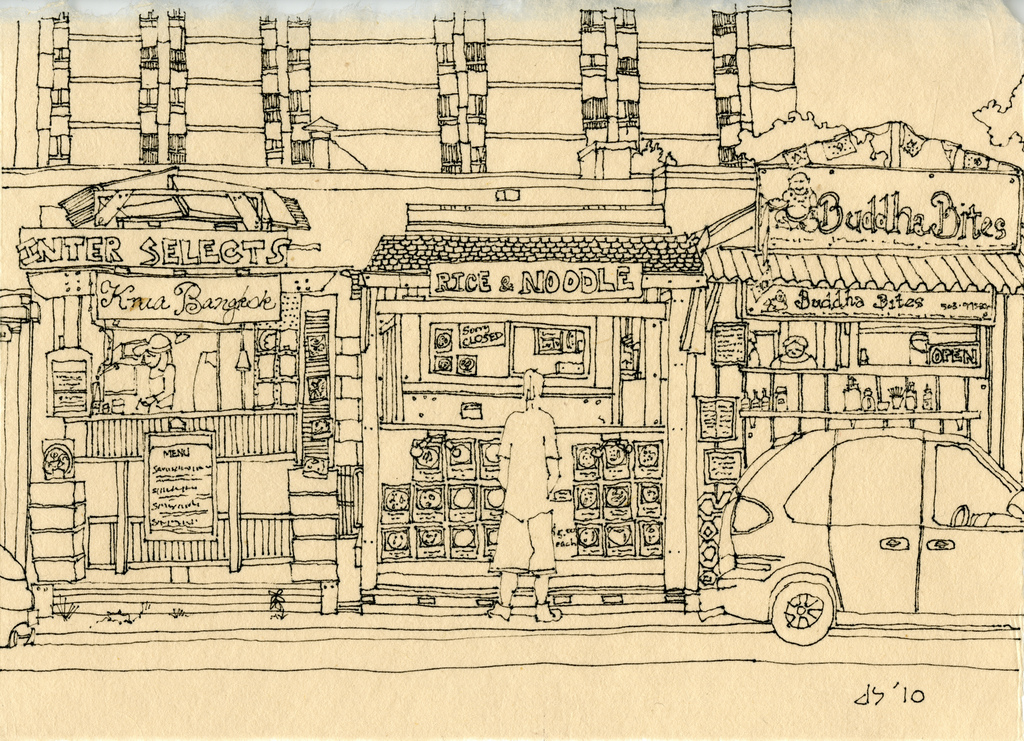 INTER SELECTS
Krua Bangkok
MENU
RICE & NOODLE
SORRY
CLOSED
Buddha Bites
Buddha Bites
OPEN
'10